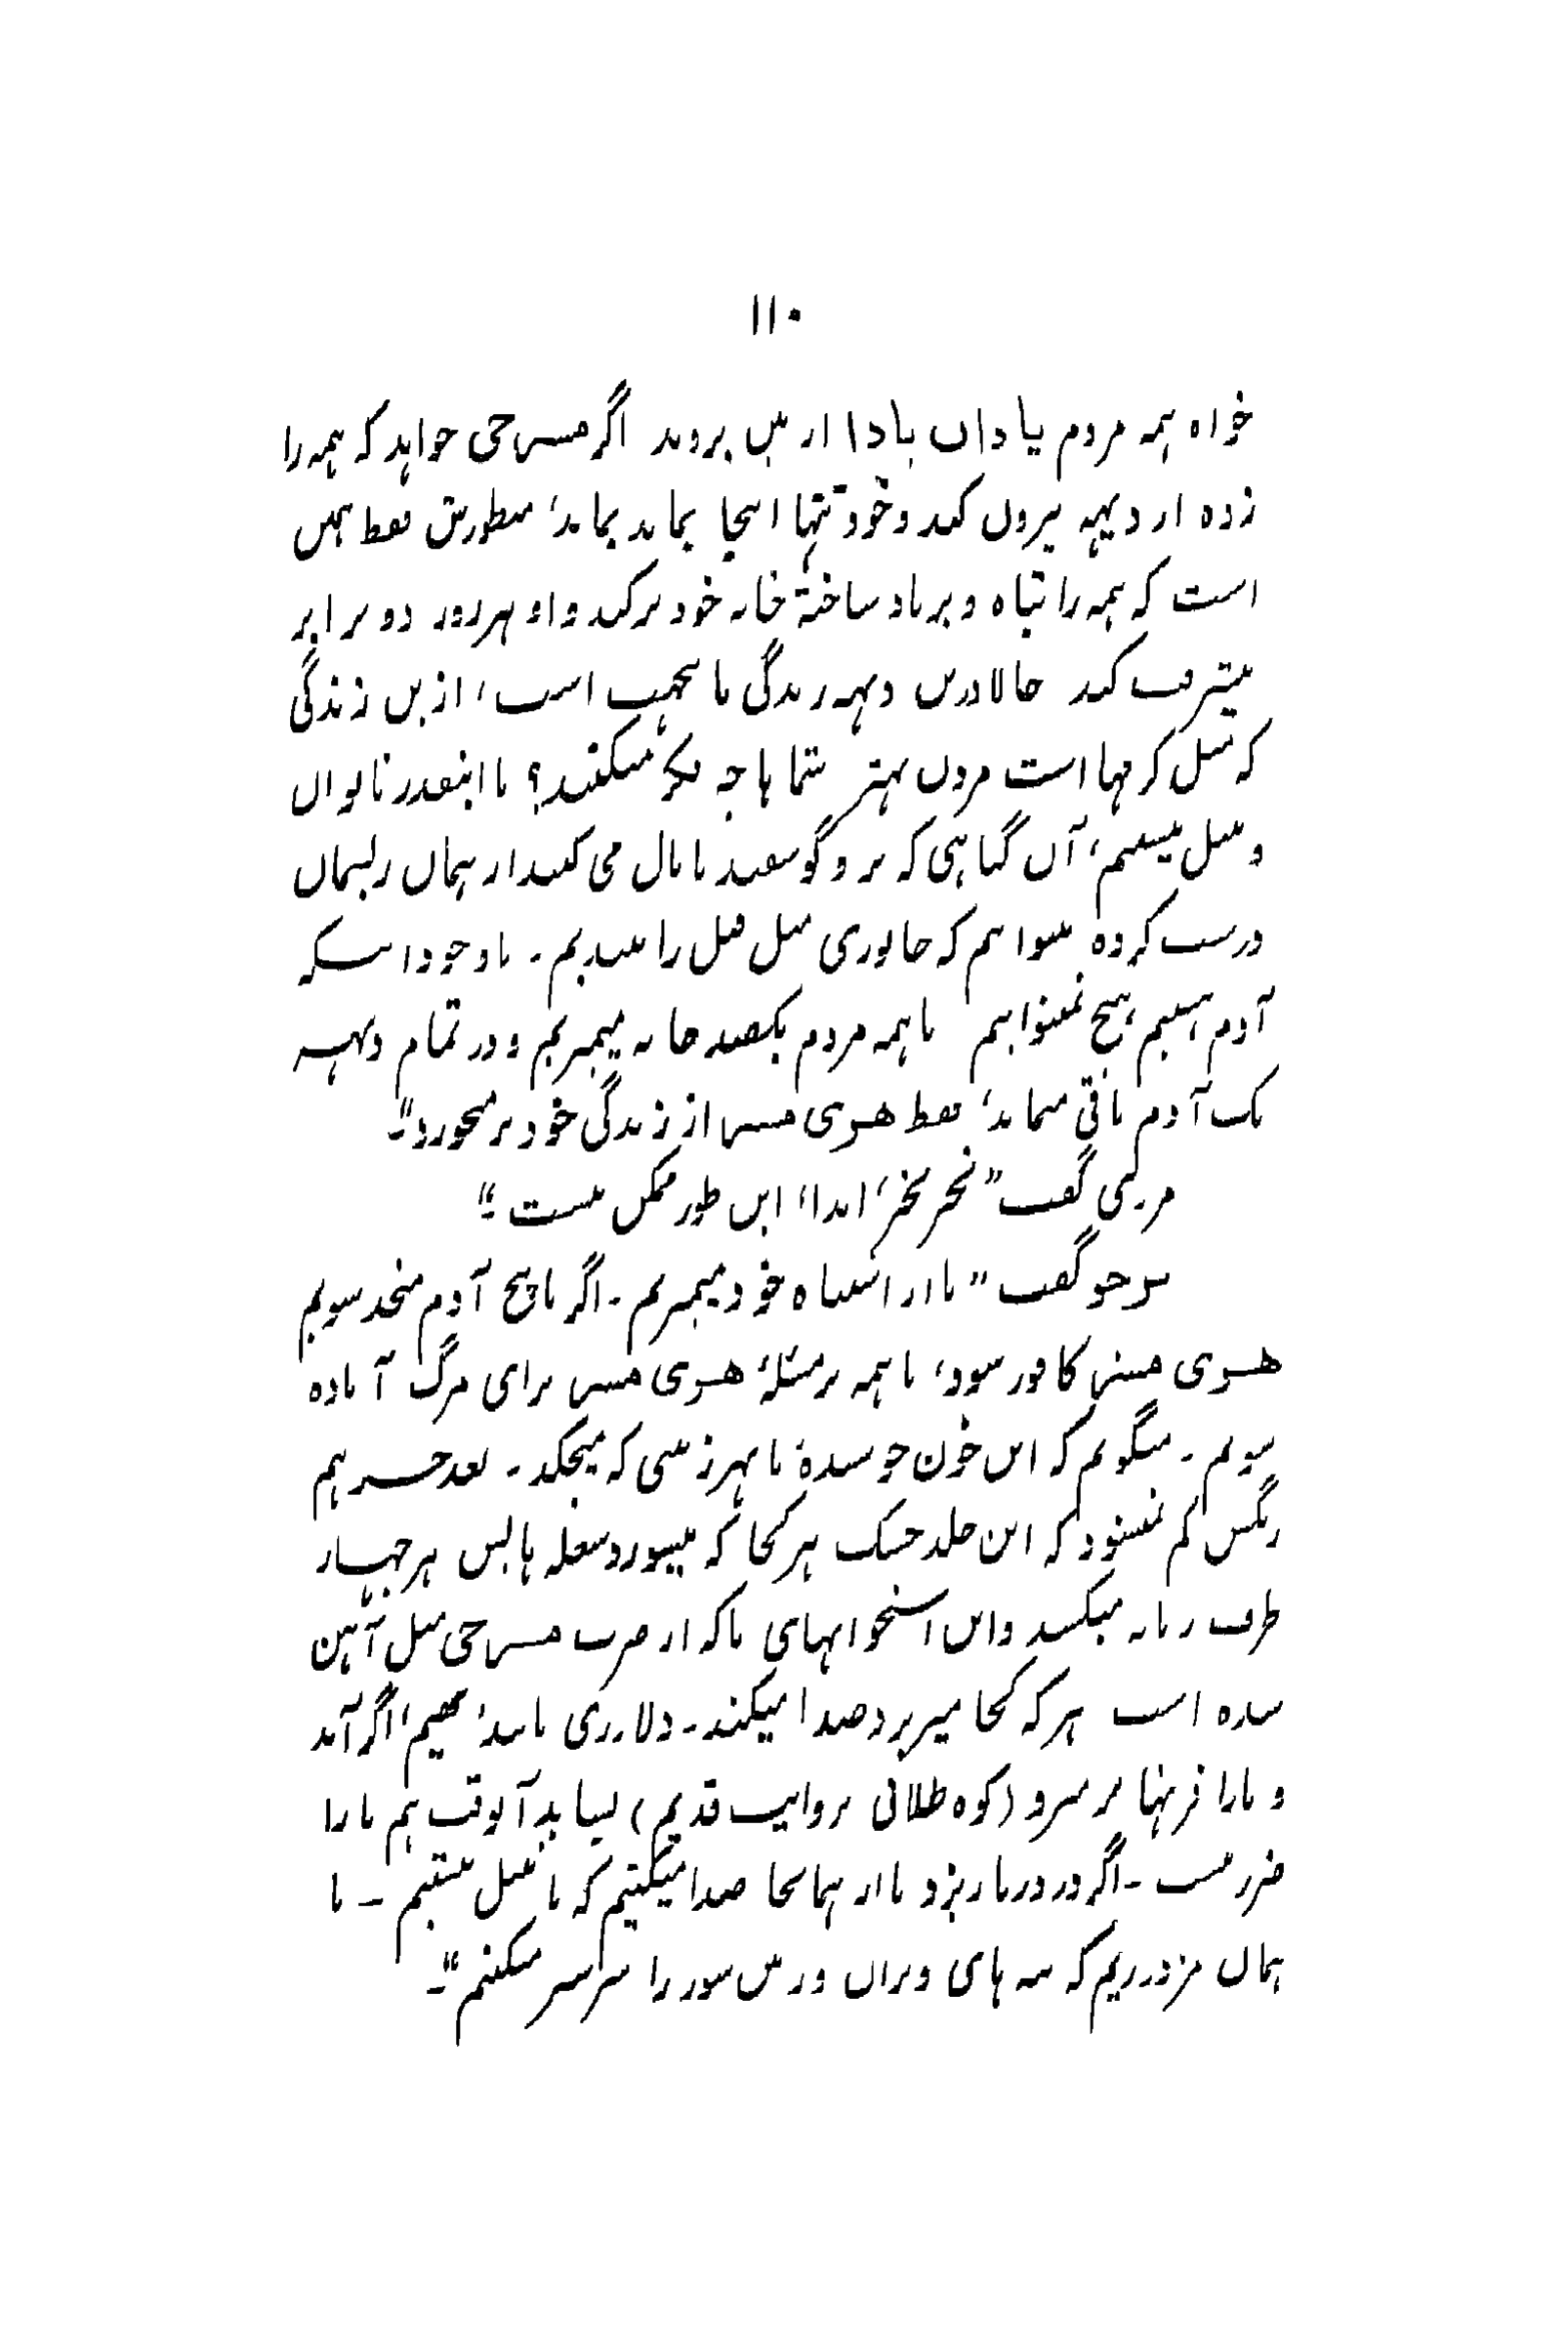 ۱۱۰
خواه همه مردم یا دان بادا از بین بروند اگر مسن جی خواهد که همه را
زده از دیهه بیرون کند و خود تنها اینجا بماند بماند، منظورش فقط همین
است که همه را تباه و برباد ساخته خانه خود پر کند و او هر روز دو برابر
پیشرفت کند حالا درین دیهه زندگی ما جهنم است، ازین زندگی
که مثل کرمها است مردن بهتر شما ها چه فکر میکنید؟ ما اینقدر ناتوان
و مثل نیستیم، آن گیاهی که بز و گوسفند پامال می کنند از همان ریسمان
درست کرده میتوانیم که جانوری مثل فیل را ببندیم ۔ باوجود اینکه
آدم هستیم، هیچ نمیتوانیم ما همه مردم یکصد خانه میمیریم و در تمام دیهه
یک آدم باقی نماند، فقط هری مسن از زندگی خود برمیخورد"۔
گفت "نخیر نخیر، ابدا، این طور ممکن نیست"۔
گفت "ما از اشتباه خود میمیریم ۔ اگر ما پنج آدم متحد شویم
هری مسن کافور شود، ما همه بر مسئله هری مسن برای مرگ آماده
شویم ۔ میگویم که این خون جوشیده ما بهر زمینی که میچکد ۔ بعد هم
رنگش کم نمیشود که این جلد خشک هر کجا که میسوزد شعله هایش هر چهار
طرف زبانه میکشد و این استخوانهای ما که از ضرب مسن جی مثل آهن
شده است هر که کجا میریزد صدا میکند ۔ اگر آمد
و ما را فرنها بر سرو (کوه طلائی بروایت قدیم) بیاید آنوقت هم ما را
ضرر نیست ۔ اگر در دریا ریزد ما از همانجا صدا میکنیم که ما مثل نیستیم ۔ ما
همان مزدوریم که های ویران و زمین شور را سرسبز میکنیم"۔